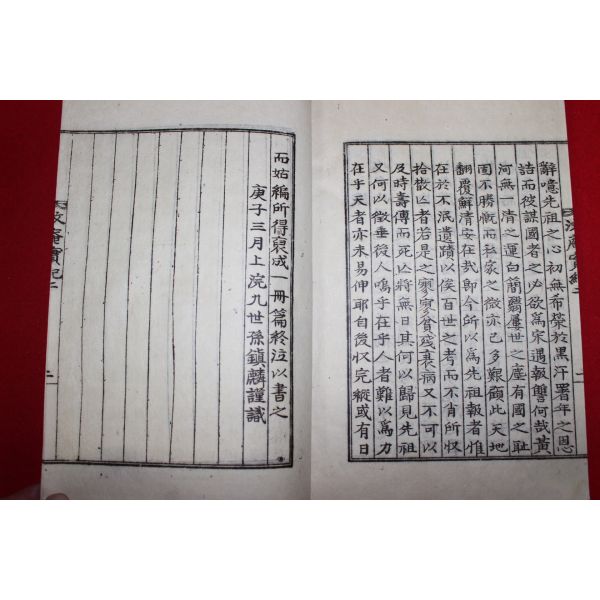 辭噫先祖之心初無希榮於黑汗署年之恩
詰而彼謀國者之必欲爲宋遇報讐何哉黃
河無一清之運白簡
有國之恥
固不勝慨而私家之微亦已多艱顧此天地
翻覆鮮清安在哉即今所以爲先祖報者惟
在於不泯遺蹟以俟百世之者而不肖所収
拾散亾者若是之寥寥貧殘衰病又不可以
及時壽傳而死亾將無日其何以歸見先祖
又何以徵垂後人嗚乎在乎人者難以爲力
在乎天者亦未易伸耶自後収完縱或有日
而姑編所得裒成一冊篇終泣以書之
庚子三月上浣九世孫鎭麟謹識
實紀二
二